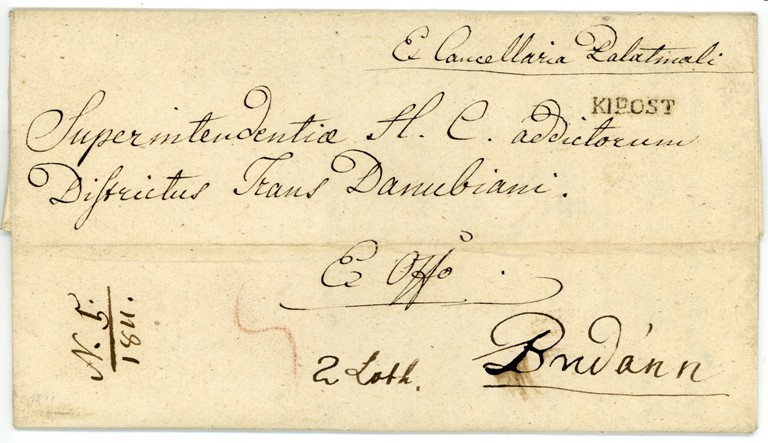 Ex Cancellaria Palatinali
KIPOST
Superintendentiæ H. C. addictorum
Districtus Trans Danubiani.
Ex Offo
N. 5.
1811.
2 Loth.